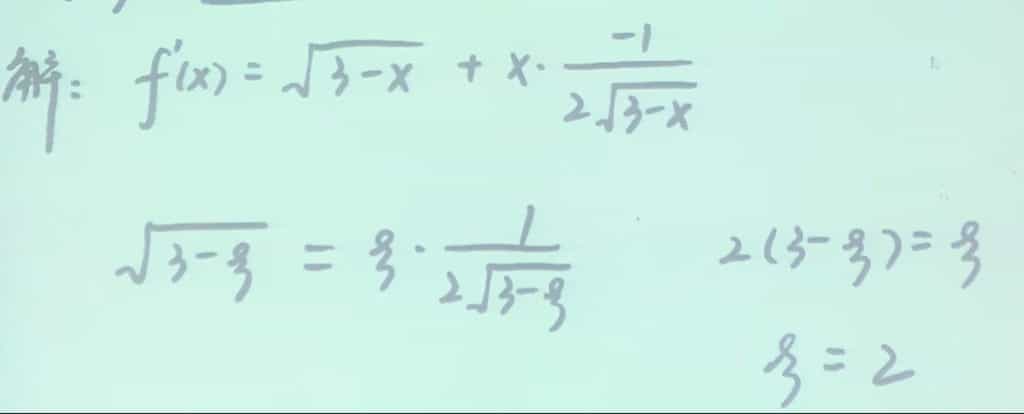 解: f'(x) = √(3-x) + x · (-1)/(2√(3-x))
√(3-ξ) = ξ · 1/(2√(3-ξ)) 2(3-ξ) = ξ
ξ = 2